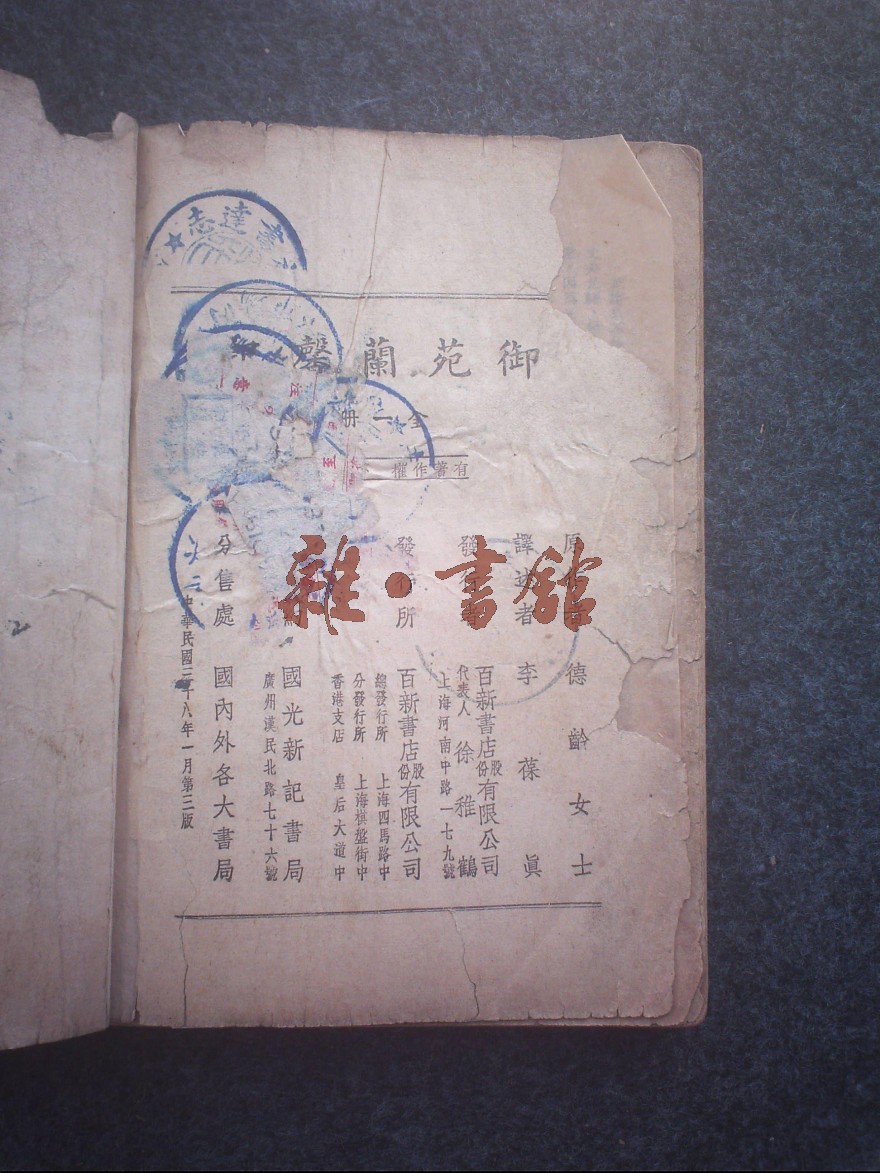 御苑蘭馨
全二冊
有著作權
德齡女士
譯述者 李葆眞
百新書店股份有限公司
代表人 徐雅鶴
上海河南中路一七九號
發行所 百新書店股份有限公司
總發行所 上海四馬路中
分發行所 上海棋盤街中
香港支店 皇后大道中
國光新記書局
廣州漢民北路七十六號
分售處 國內外各大書局
中華民國三十八年一月第三版
志達書
雜·書舘